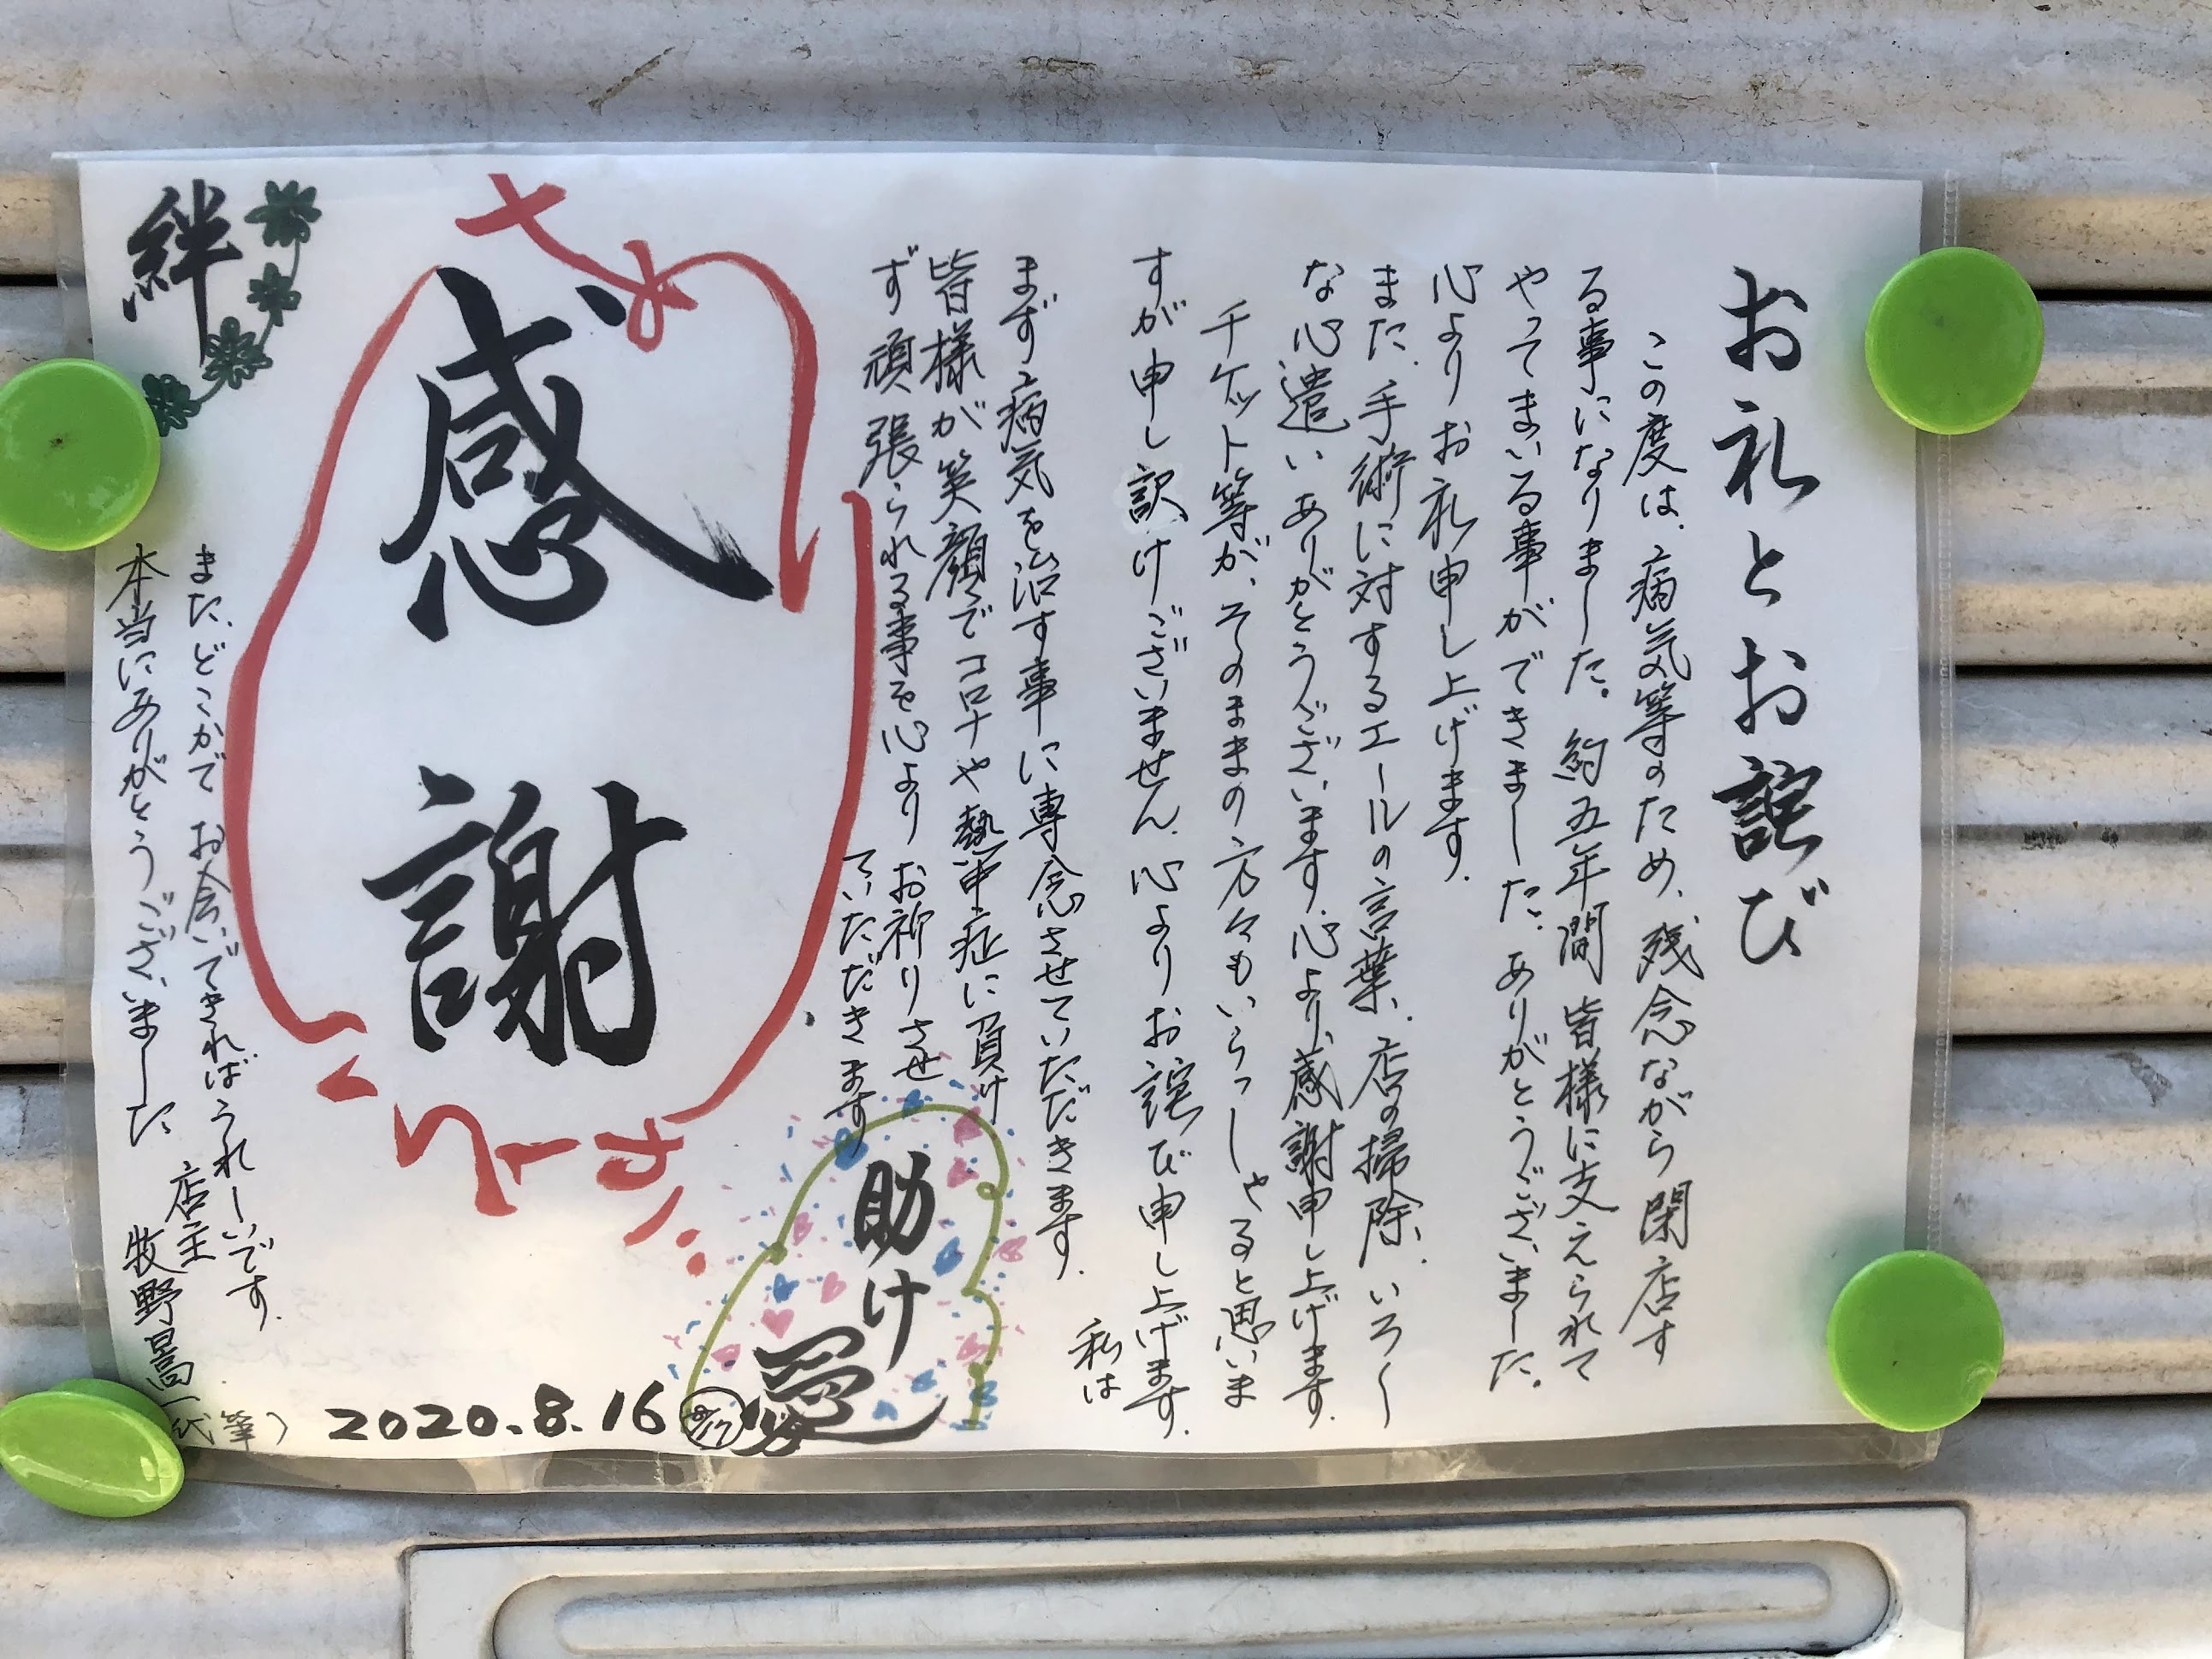 お礼とお詫び
この度は、病気等のため、残念ながら閉店す
る事になりました。約五年間皆様に支えられて
やってまいる事ができました。ありがとうございました。
心よりお礼申し上げます。
また、手術に対するエールの言葉、店の掃除、いろ〳〵
な心遣いありがとうございます。心より、感謝申し上げます。
チケット等が、そのままの方々もいらっしゃると思いま
すが申し訳けございません。心よりお詫び申し上げます。
私は
まず、病気を治す事に専念させていただきます。
皆様が笑顔でコロナや熱中症に負け
ず頑張られる事を心よりお祈りさせ
ていただきます
助け愛
感謝
絆
また、どこかでお会いできればうれしいです。
本当にありがとうございました
店主
牧野
(代筆)
2020.8.16
8/17